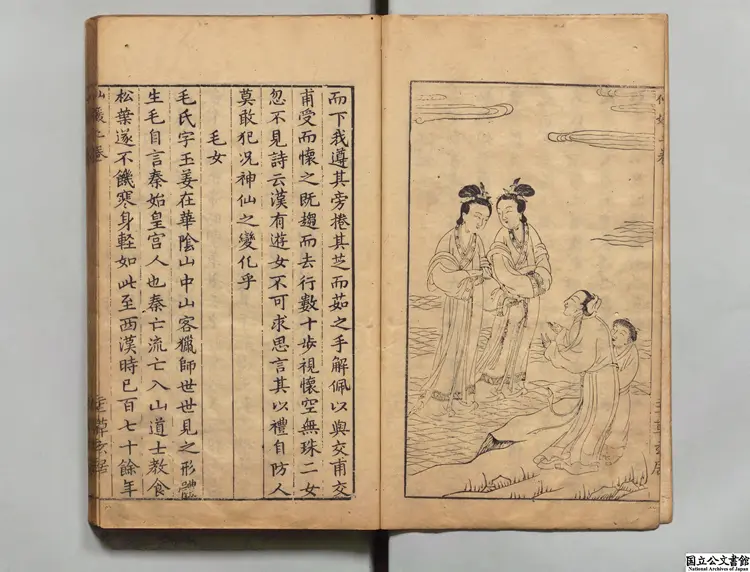 而下我遵其旁捲其芝而茹之手解佩以與交甫交
甫受而懷之既趨而去行數十步視懷空無珠二女
忽不見詩云漢有遊女不可求思言其以禮自防人
莫敢犯況神仙之變化乎
毛女
毛氏字玉姜在華陰山中山客獵師世世見之形體
生毛自言秦始皇宮人也秦亡流亡入山道士教食
松葉遂不饑寒身輕如此至西漢時已百七十餘年
国立公文書館
National Archives of Japan